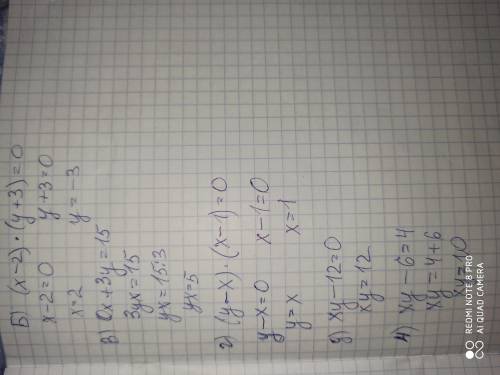 Б) (x-2)·(y+3)=0
x-2=0 y+3=0
x=2 y=-3
в) 0x+3y=15
3yx=15
yx=15:3
yx=5
г) (y-x)·(x-1)=0
y-x=0 x-1=0
y=x x=1
g) xy-12=0
xy=12
4) xy-6=4
xy=4+6
xy=10
REDMI NOTE 8 PRO
AI QUAD CAMERA